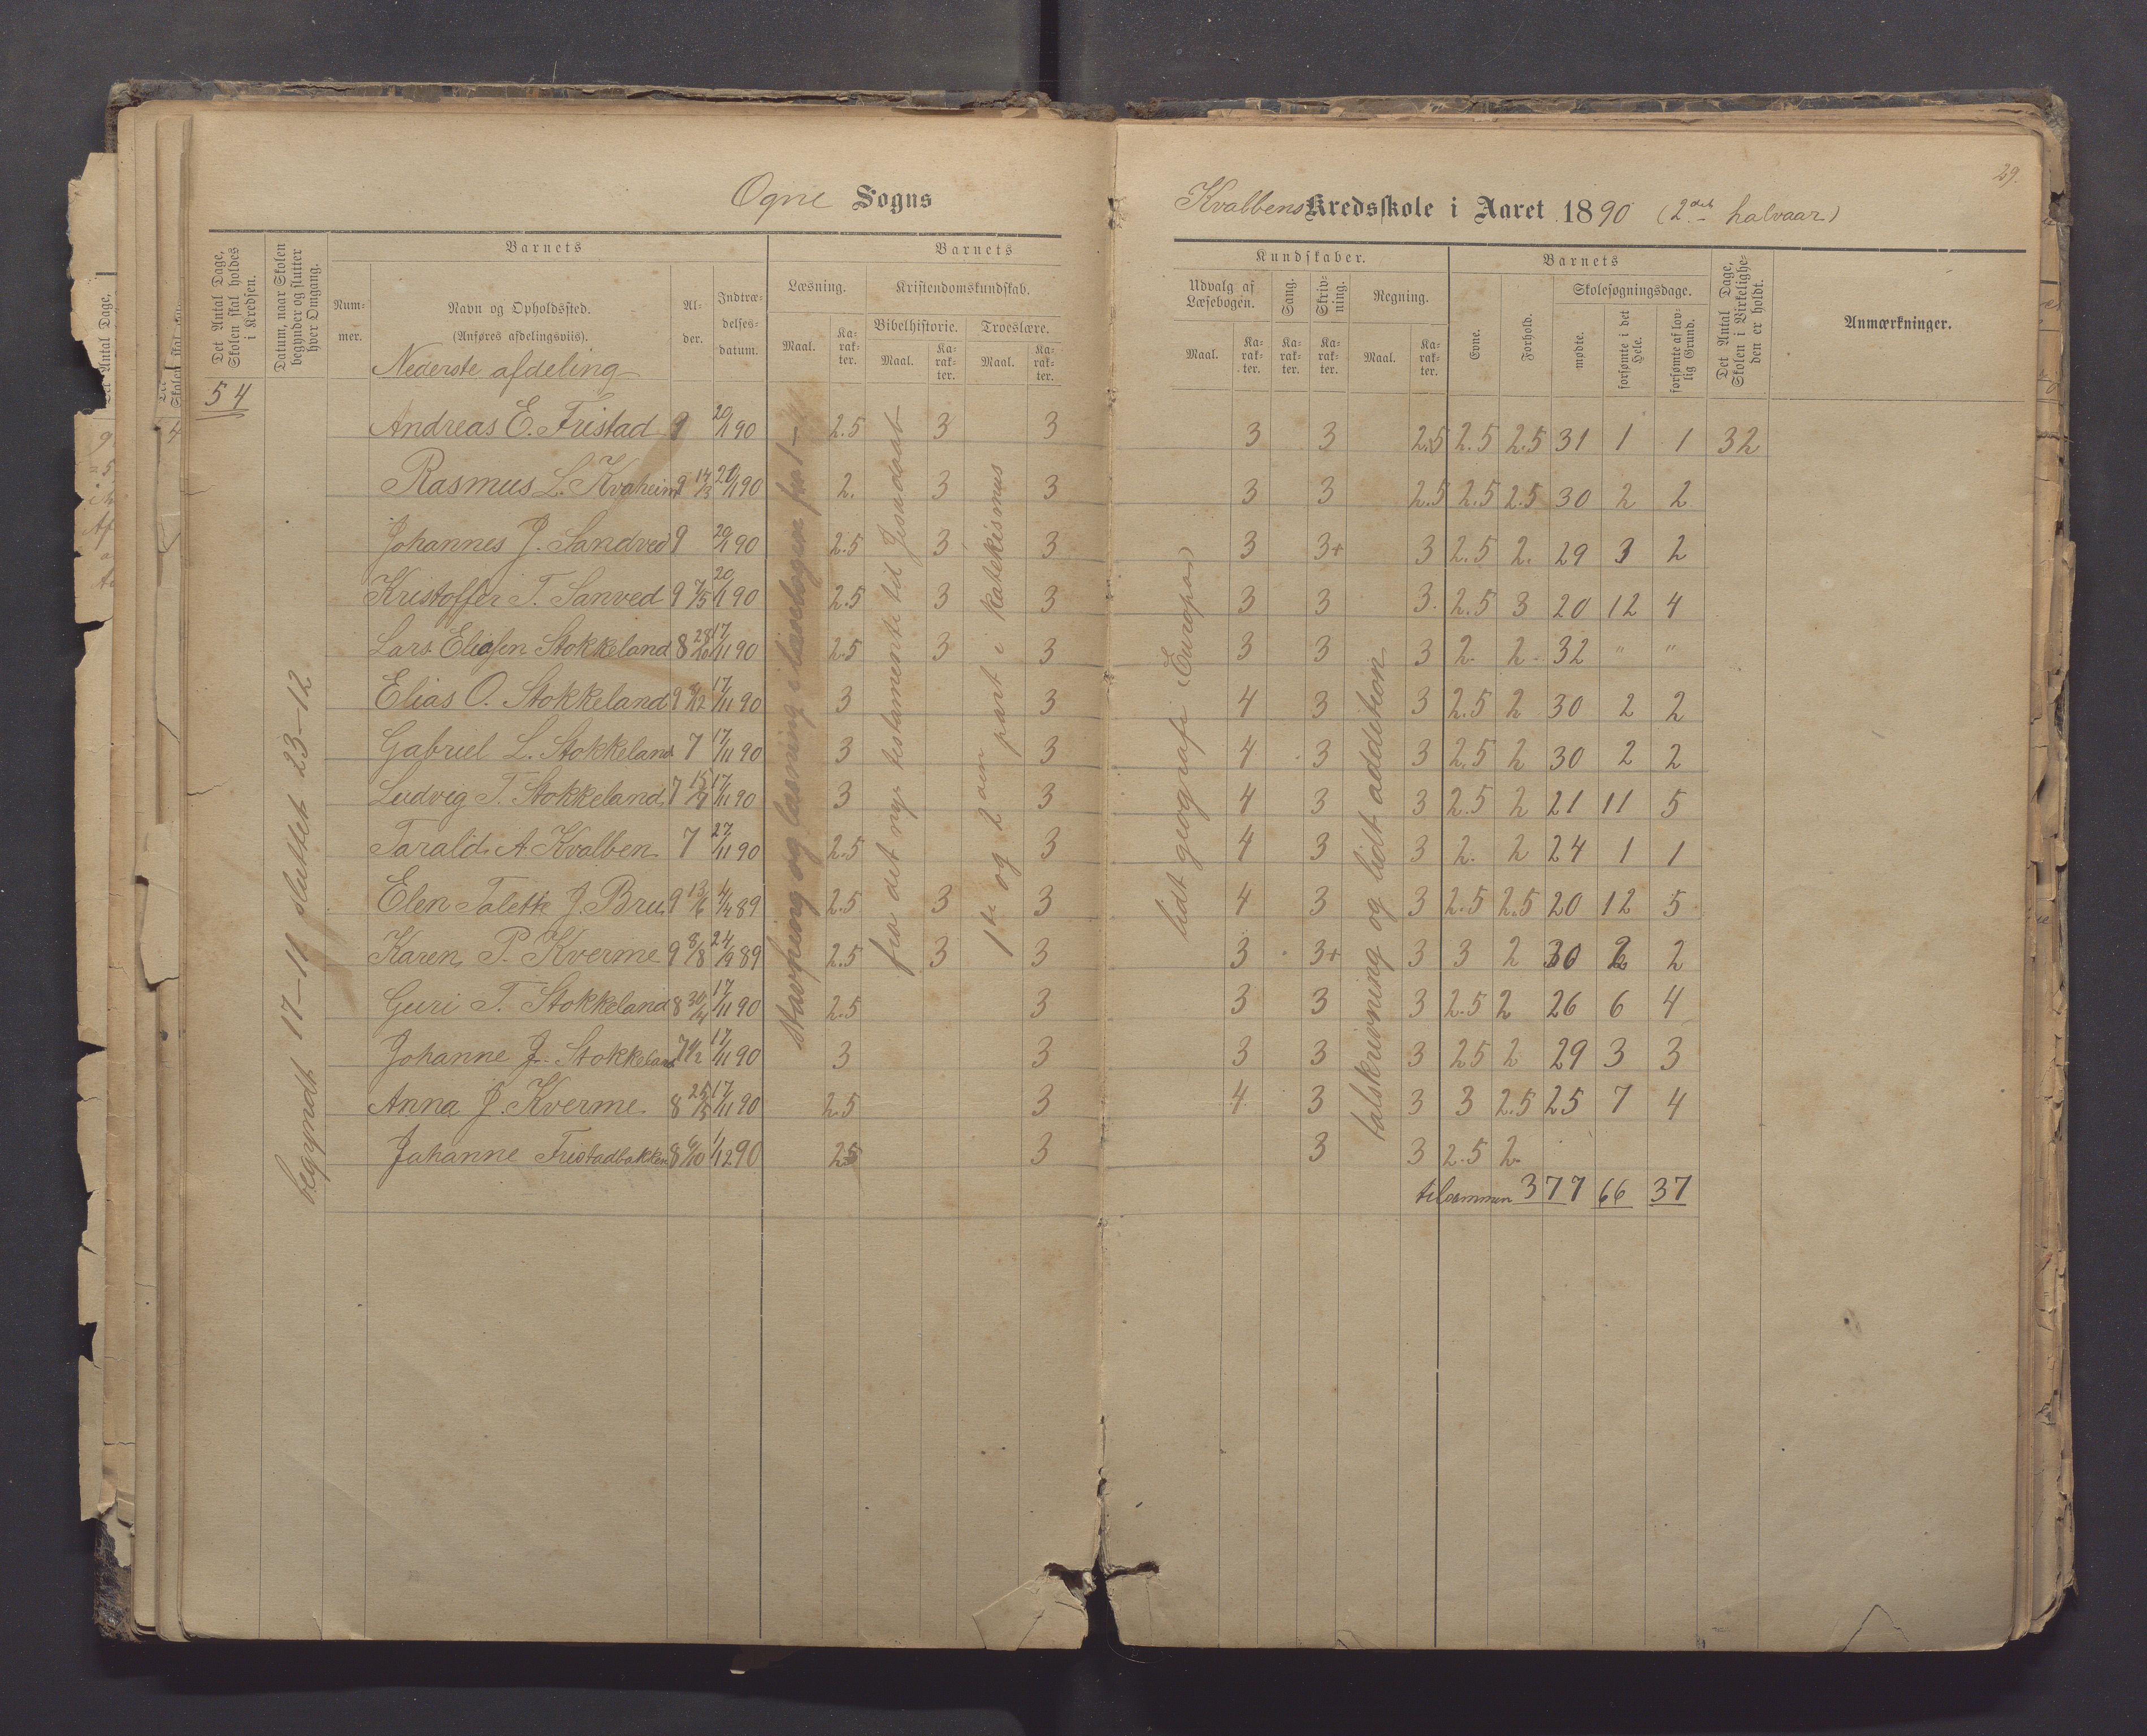 29.
Ogne Sogns
Kvalbens Kredsskole i Aaret 1890 (2det halvaar)
Det Antal Dage, Skolen skal holdes i Kredsen.
Datum, naar Skolen begynder og slutter hver Omgang.
Barnets
Barnets
Kundskaber.
Barnets
Det Antal Dage, Skolen i Virkeligheden er holdt.
Anmærkninger.
Nummer.
Navn og Opholdssted.
(Anføres afdelingsviis).
Alder.
Indtrædelsesdatum.
Læsning.
Kristendomskundskab.
Bibelhistorie.
Troeslære.
Maal.
Karakter.
Maal.
Karakter.
Maal.
Karakter.
Udvalg af Læsebogen.
Sang.
Skrivning.
Regning.
Maal.
Karakter.
Karakter.
Karakter.
Maal.
Karakter.
Evne.
Forhold.
Skolesøgningsdage.
mødte.
forsømte i det Hele.
forsømte af lovlig Grund.
Nederste afdeling
54
begyndt 17-11 sluttet 23-12
stavning og læsning i læsebogen
fra det nye testamente til Jesu daab
1te og 2den part i katekismus
lidt geografi (Europa)
talskrivning og lidt addition
Andreas E. Fristad 9 20/1 90 2.5 3 3 3 3 2.5 2.5 2.5 31 1 1 32
Rasmus L. Kvaheim 9 14/3 20/1 90 2. 3 3 3 3 2.5 2.5 2.5 30 2 2
Johannes J. Sandved 9 20/1 90 2.5 3 3 3 3+ 3 2.5 2. 29 3 2
Kristoffer T. Sanved 9 7/5 20/1 90 2.5 3 3 3 3 3. 2.5 3 20 12 4
Lars Eliasen Stokkeland 8 28/10 17/11 90 2.5 3 3 3 3 3 2. 2. 32 " "
Elias O. Stokkeland 9 17/11 90 3 3 4 3 3 2.5 2 30 2 2
Gabriel L. Stokkeland 7 17/11 90 3 3 4 3 3 2.5 2 30 2 2
Ludvig T. Stokkeland 7 17/11 90 3 3 4 3 3 2.5 2 21 11 5
Tarald A. Kvalben 7 27/11 90 2.5 3 4 3 3 2. 2 24 1 1
Elen Talette J. Bru 9 13/6 4/4 89 2.5 3 3 4 3 3 2.5 2.5 20 12 5
Karen P. Kverme 9 8/8 24/9 89 2.5 3 3 3 3+ 3 3 2 30 2 2
Guri T. Stokkeland 8 30/4 17/11 90 2.5 3 3 3 3 2.5 2 26 6 4
Johanne J. Stokkeland 7 17/11 90 3 3 3 3 3 25 2 29 3 3
Anna J. Kverme 8 25/5 17/11 90 2.5 3 4 3 3 3 2.5 25 7 4
Johanne Fristadbakken 8 6/10 1/12 90 25 3 3 3 2.5 2.
tilsammen 377 66 37